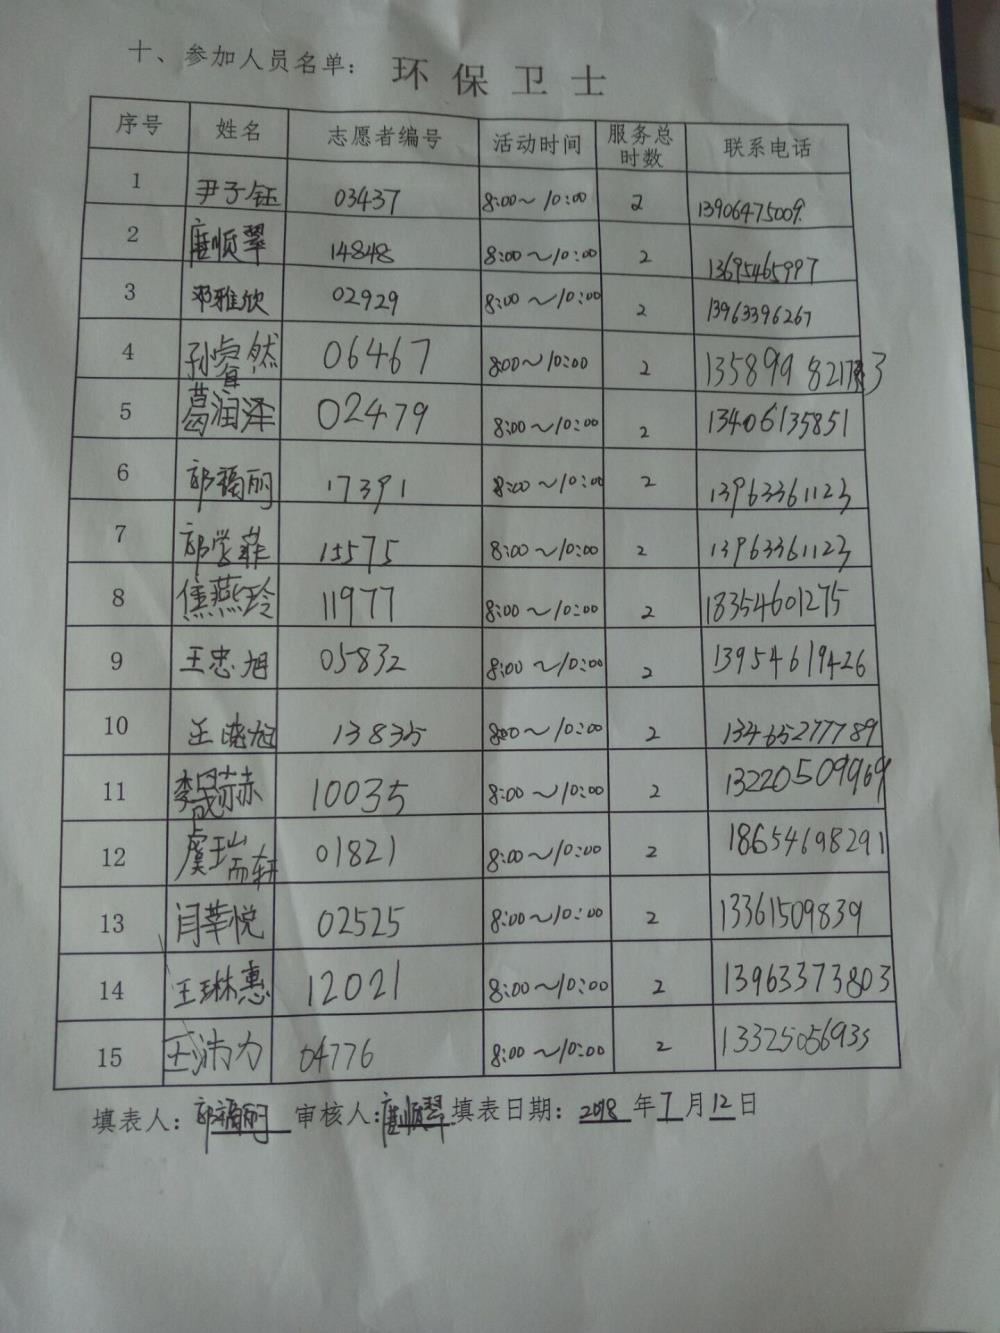 十、参加人员名单： 环保卫士
序号 姓名 志愿者编号 活动时间 服务总时数 联系电话
1 尹子钰 03437 8:00~10:00 2 13906475009.
2 唐顺翠 14848 8:00~10:00 2 13695465997
3 邓雅欣 02929 8:00~10:00 2 13963396267
4 孙睿然 06467 8:00~10:00 2
5 葛润泽 02479 8:00~10:00 2 13406135851
6 郭福丽 17391 8:00~10:00 2 13963361123
7 郭学菲 15575 8:00~10:00 2 13963361123
8 焦燕玲 11977 8:00~10:00 2 18354601275
9 王忠旭 05832 8:00~10:00 2 13954619426
10 13835 8:00~10:00 2 13465277789
11 李晟赫 10035 8:00~10:00 2 13220509969
12 虞瑞轩 01821 8:00~10:00 2 18654698291
13 闫莘悦 02525 8:00~10:00 2 13361509839
14 王琳惠 12021 8:00~10:00 2 13963373803
15 04776 8:00~10:00 2 13325056935
填表人：郭福丽 审核人：唐顺翠 填表日期：2018 年 7 月 12 日